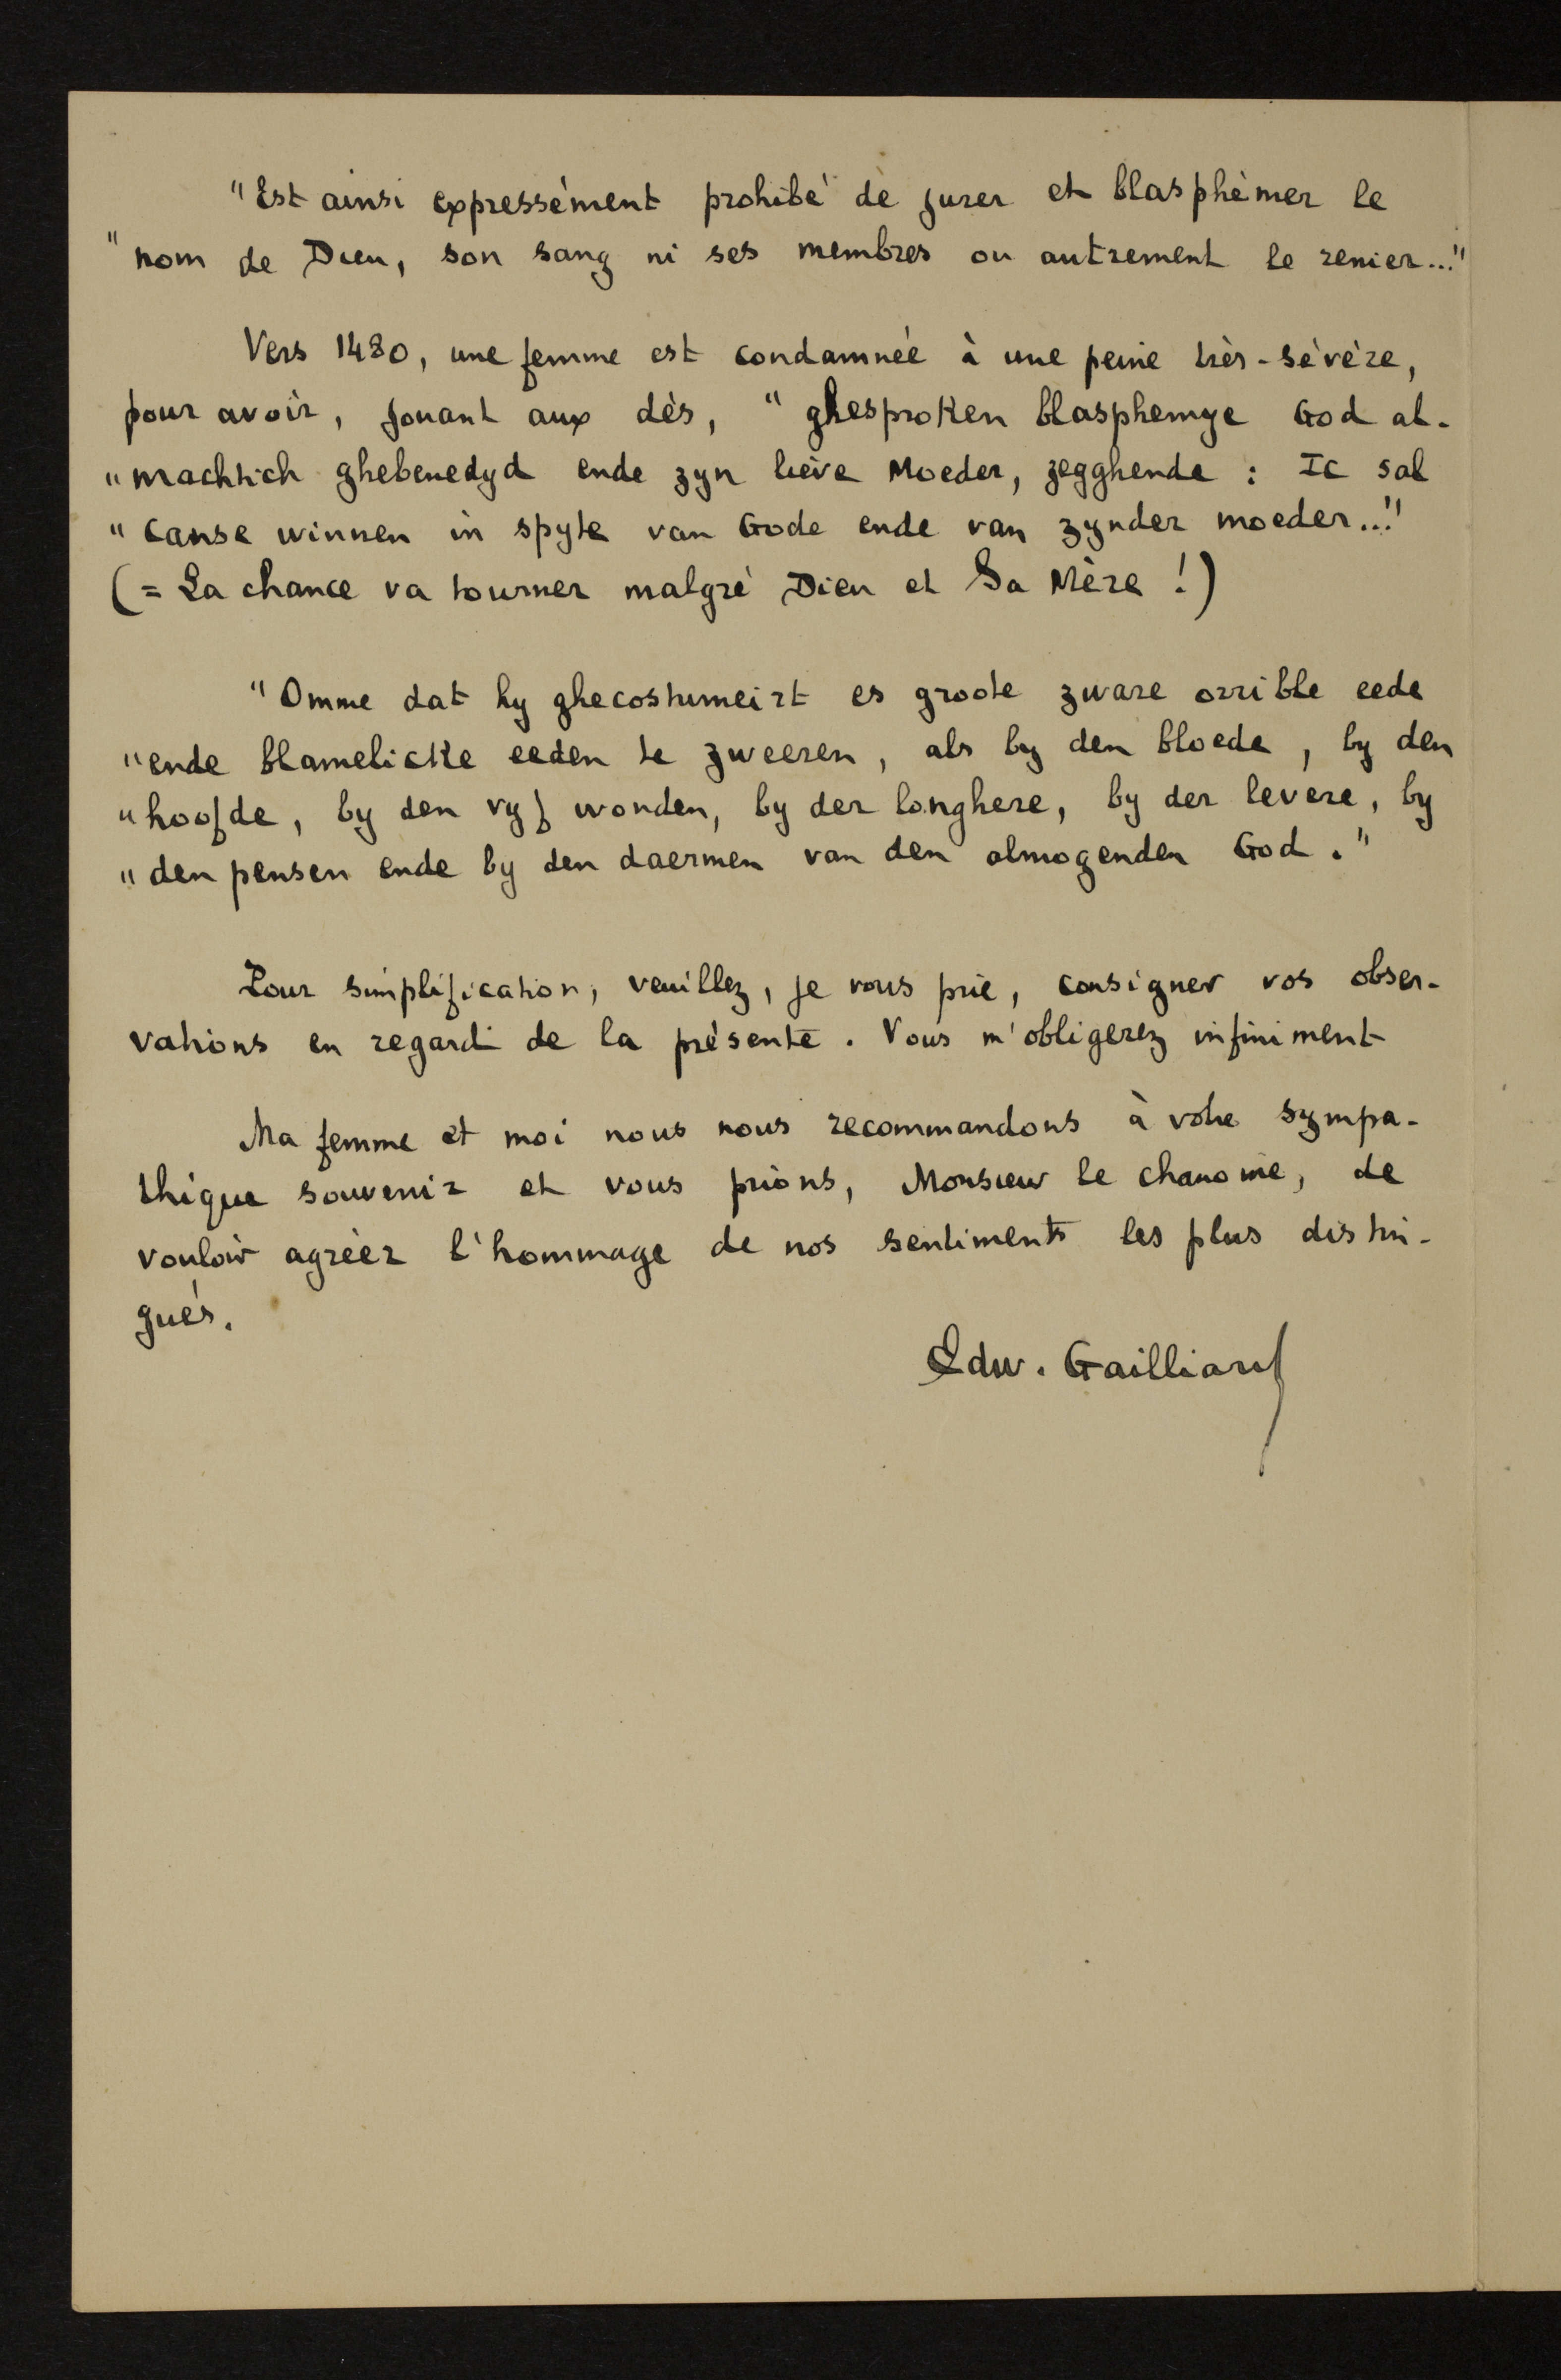 "Est ainsi expressément prohibé de jurer et blasphémer le
"nom de Dieu, son sang ni ses membres ou autrement le renier..."
Vers 1480, une femme est condamnée à une peine très-sévère,
pour avoir, jouant aux dés, "ghesproken blasphemye God al-
"machtich ghebenedyd ende zyn lieve Moeder, zegghende : Ic sal
"canse winnen in spyte van Gode ende van zynder moeder..."
(= La chance va tourner malgré Dieu et Sa Mère !)
"Omme dat hy ghecostumeirt es groote zware orrible eede
"ende blamelicke eeden te zweeren, als by den bloede, by den
"hoofde, by den vyf wonden, by der longhere, by der levere, by
"den pensen ende by den daermen van den almogenden God."
Pour simplification, veuillez, je vous prie, consigner vos obser-
vations en regard de la présente. Vous m'obligerez infiniment
Ma femme et moi nous nous recommandons à votre sympa-
thique souvenir et vous prions, Monsieur le chanoine, de
vouloir agréer l'hommage de nos sentiments les plus distin-
gués.
Edw. Gailliard